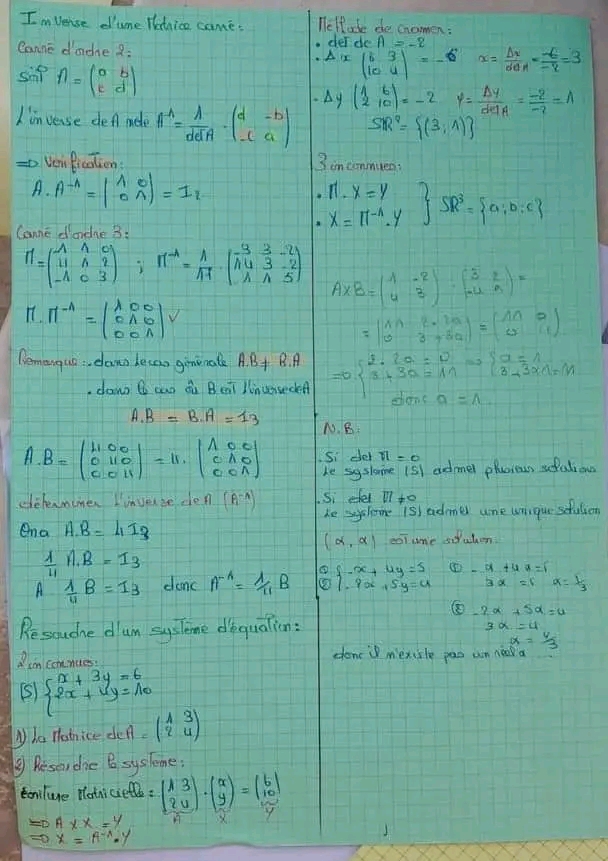 Inverse d'une Matrice carré:
Carré d'ordre 2:
soit A = (a b
c d)
L'inverse de A note A⁻¹ = 1/detA . (d -b
-c a)
=> Verification:
A. A⁻¹ = (1 0
0 1) = I2
Carré d'ordre 3:
M = (-1 1 0
4 1 2
-1 0 3) ; M⁻¹ = 1/-17 . (-3 3 -2
14 3 -2
1 1 5)
M. M⁻¹ = (1 0 0
0 1 0
0 0 1) ✓
Remarque: . dans le cas générale A.B ≠ B.A
. dans le cas où B est l'inverse de A
A.B = B.A = I3
A.B = (4 0 0
0 4 0
0 0 4) = 4. (1 0 0
0 1 0
0 0 1)
déterminer l'inverse de A (A⁻¹)
Ona A.B = 4 I3
1/4 A.B = I3
A 1/4 B = I3 donc A⁻¹ = 1/4 B
Résoudre d'un système d'équation:
2 inconnues:
(S) { x + 3y = 6
2x + 4y = 10
1) La Matrice de A = (1 3
2 4)
2) Résoudre le système:
écriture Matricielle: (1 3
2 4) . (x
y) = (6
10)
A X Y
=> A x X = Y
=> X = A⁻¹. Y
Méthode de cramer:
. det de A = -2
. Δx (6 3
10 4) = -6 x = Δx/detA = -6/-2 = 3
. Δy (1 6
2 10) = -2 y = Δy/detA = -2/-2 = 1
SIR² = {(3; 1)}
3 inconnues:
. M. X = Y
. X = M⁻¹. Y } SIR³ = {a; b; c}
AxB = (1 -2
4 3) . (3 2
-4 a) =
= (11 2-2a
0 3+3a) = (11 0
0 11)
=> { 2-2a = 0
3+3a = 11 => { a = 1
3+3x1 = 11
donc a = 1.
N.B:
. Si det M = 0
Le systeme (S) admet plusieurs solutions
. Si det M ≠ 0
Le système (S) admet une unique solution
(α, α) est une solution:
① { -x + 4y = 5
② { -2x + 5y = 4
① -α + 4α = 5
3α = 5 α = 5/3
② -2α + 5α = 4
3α = 4
α = 4/3
donc il n'existe pas un réel α ...